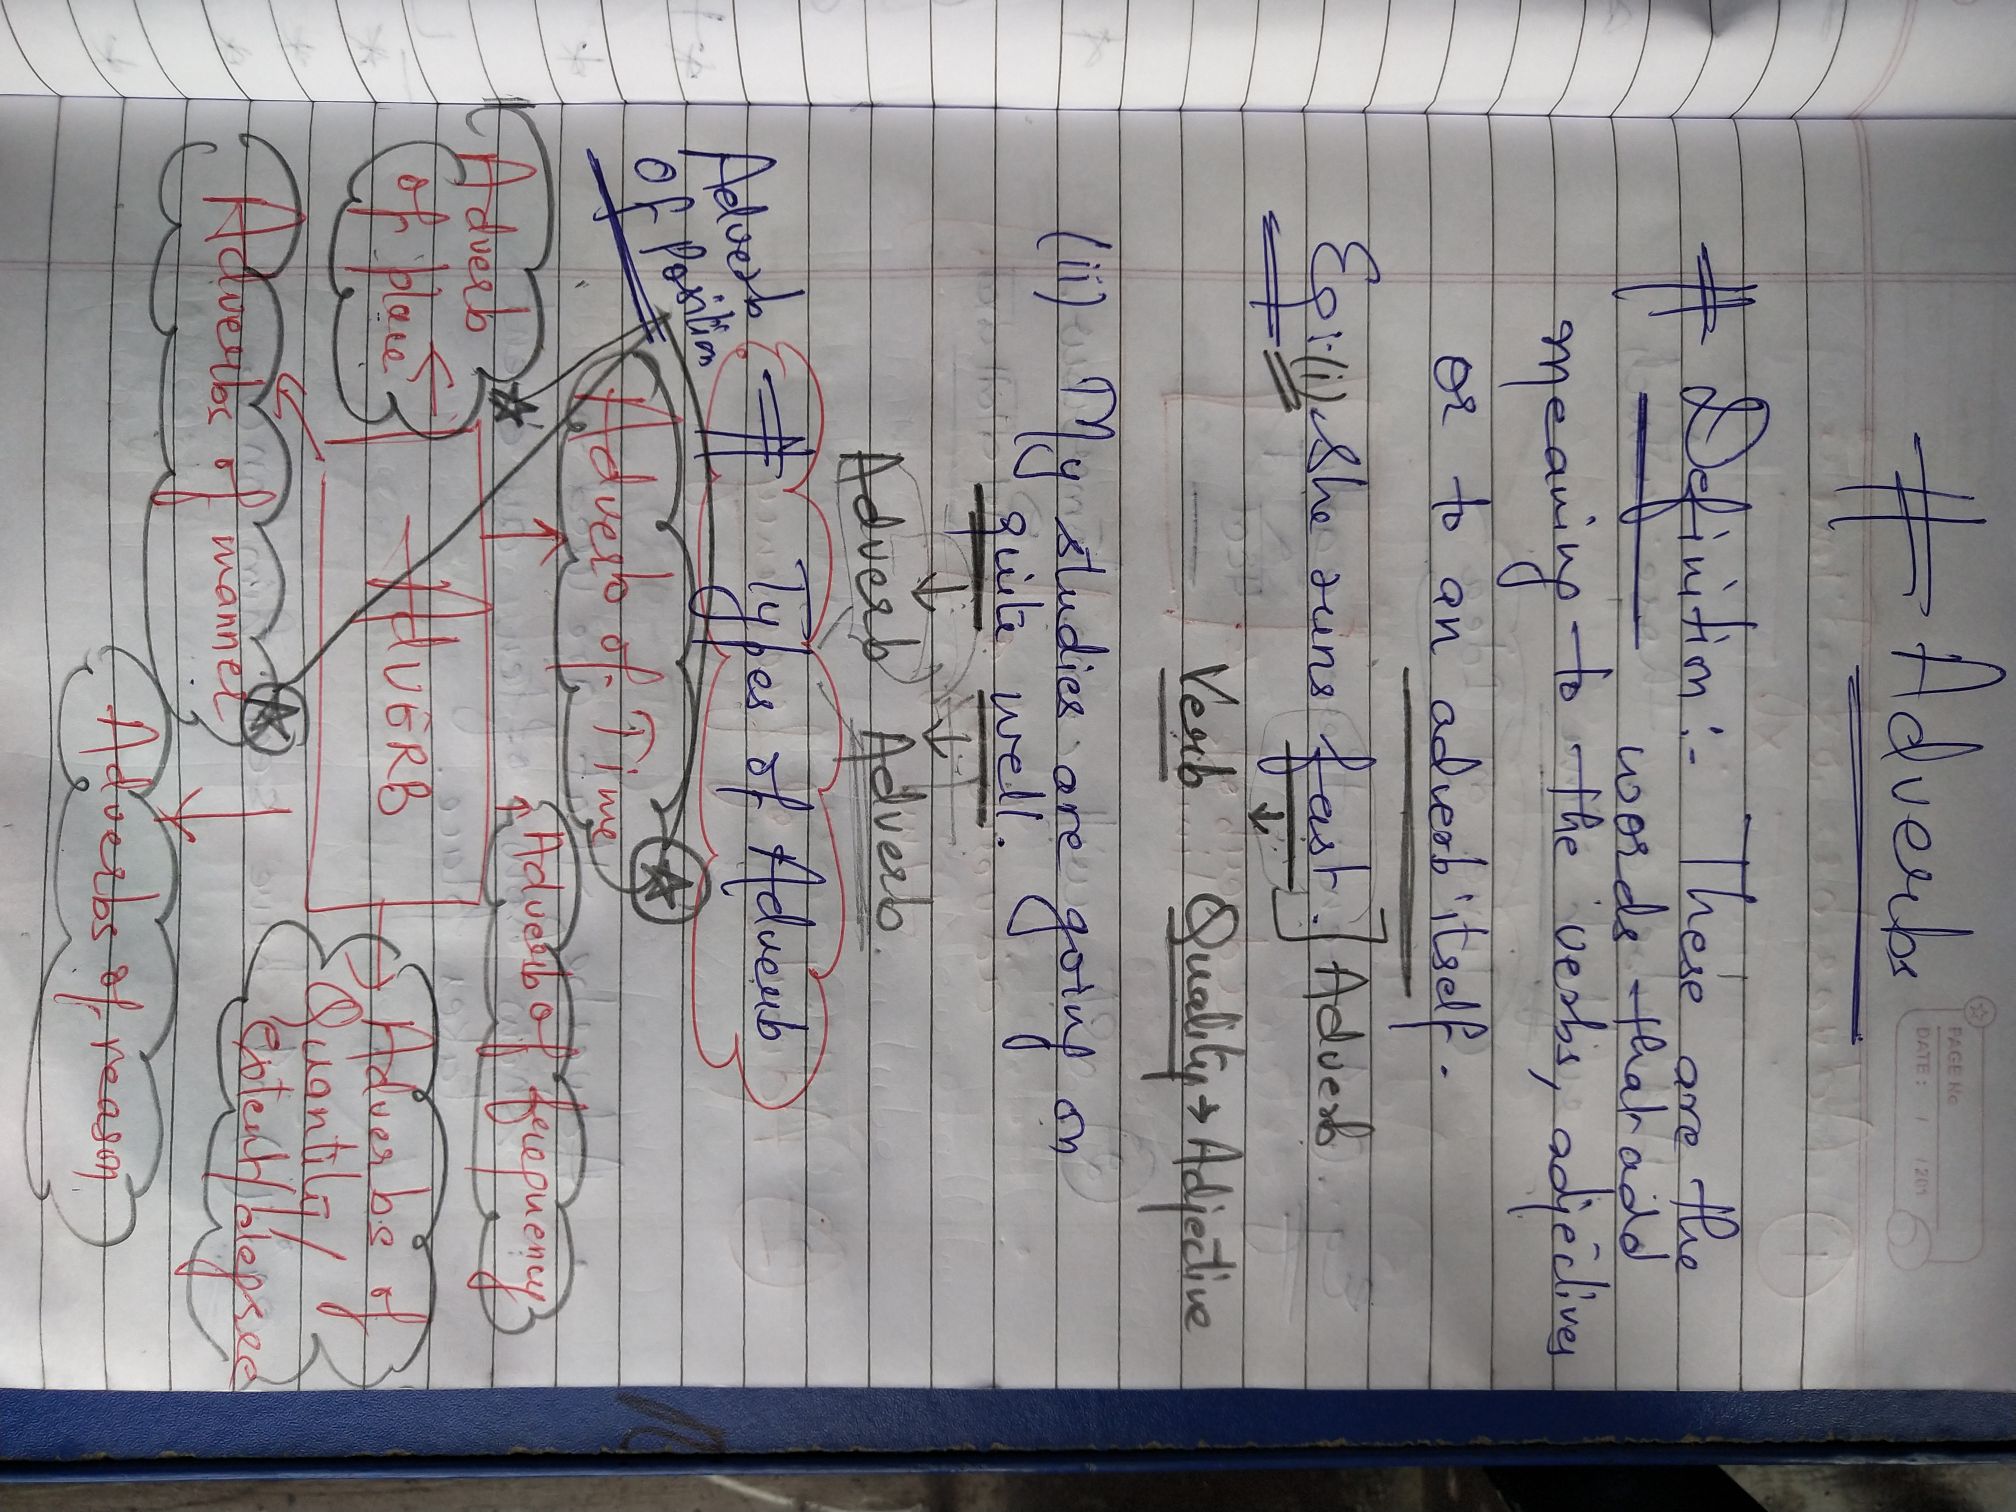 PAGE No.
DATE: / / 201
# Adverbs
# Definition :- These are the
words that add
meaning to the verbs, adjectives
or to an adverb itself.
Eg:- (i) She runs fast. ] Adverb.
Verb Quality → Adjective
(ii) My studies are going on
quite well.
Adverb Adverb.
# Types of Adverb
Adverb
of Position
Adverb of Time
Adverb of frequency
Adverb
of place
ADVERB
Adverbs of
Quantity/
Extent/degree
Adverbs of manner
Adverbs of reason